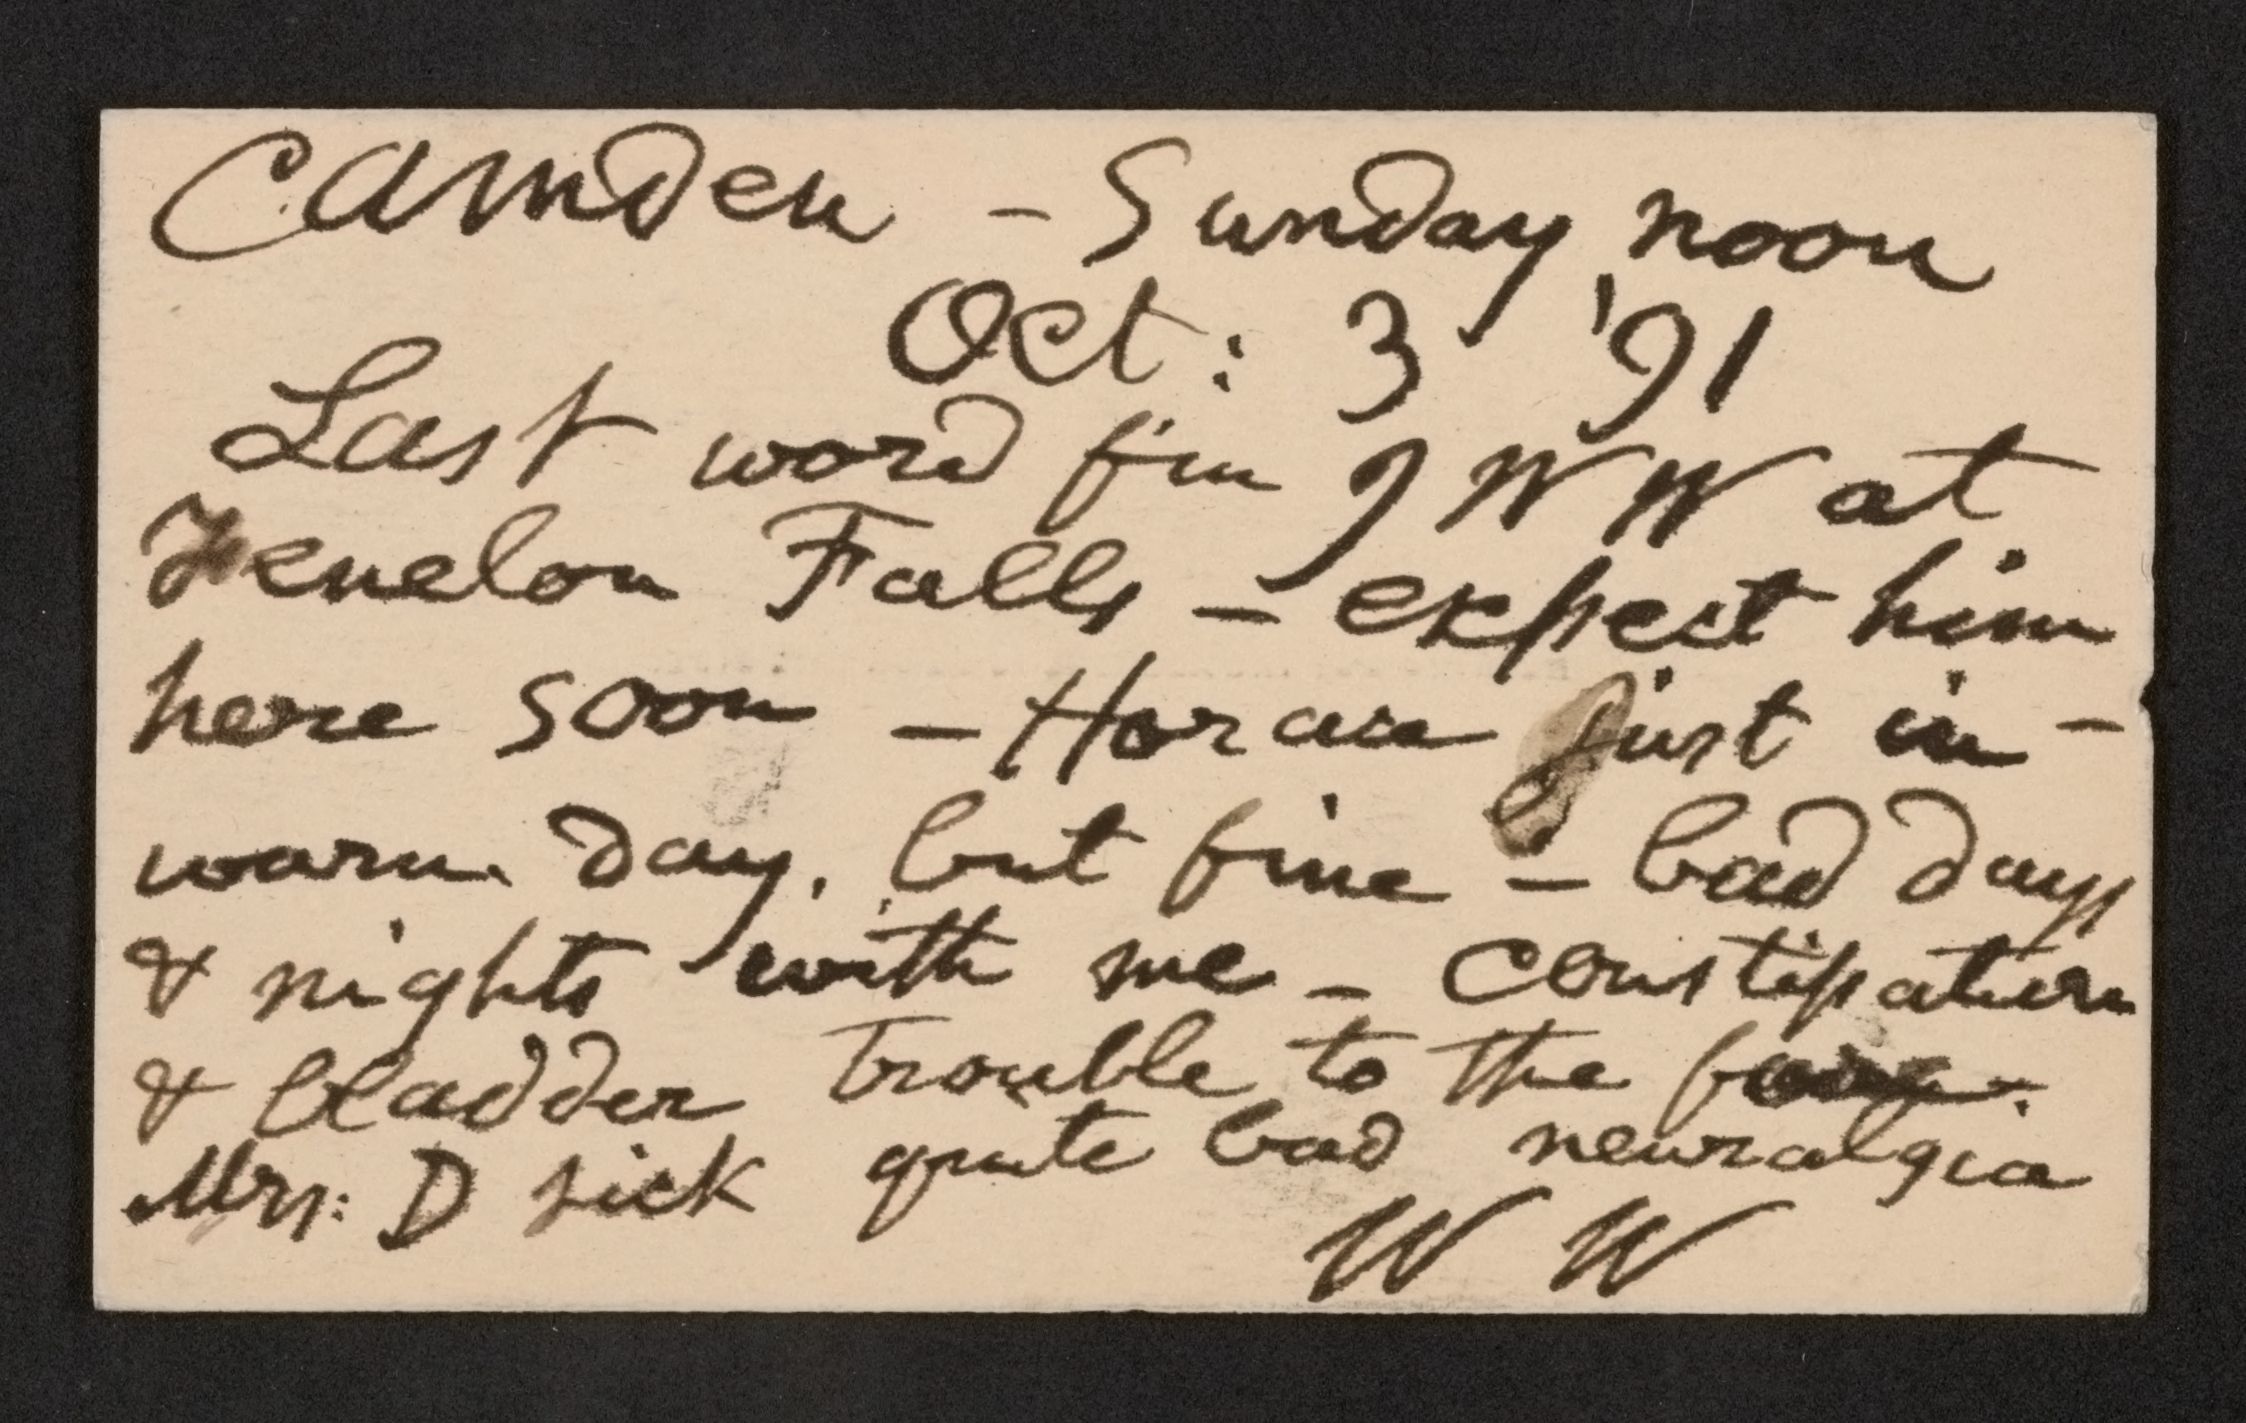 Camden – Sunday noon
Oct: 3 '91
Last word f'm J W W at
Fenelon Falls – expect him
here soon – Horace just in –
warm day, but fine – bad days
& nights with me – constipation
& bladder trouble to the fore.
Mrs: D sick quite bad neuralgia
W W